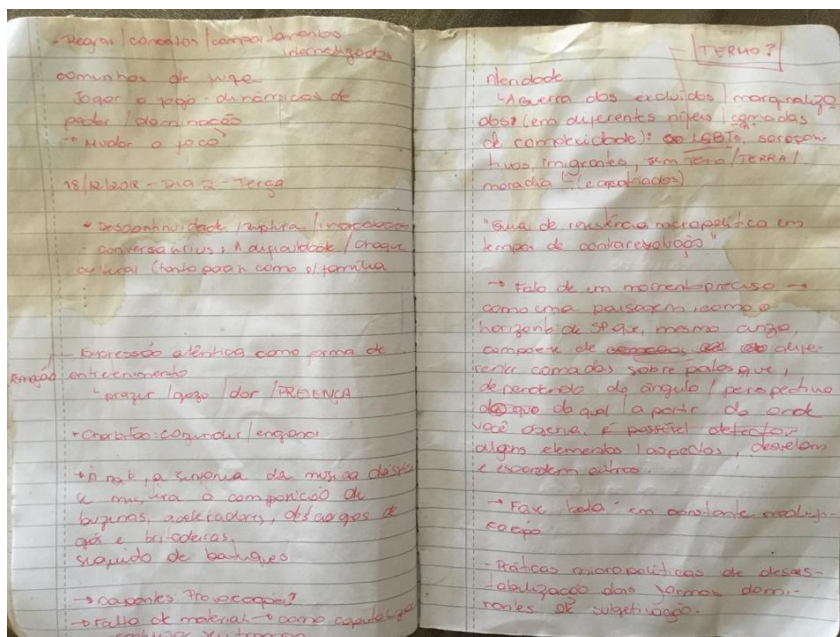 - Regras / conceitos / comportamentos
internalizados
caminhos de
Jogar o jogo - dinâmicas de
poder / dominação
→ Mudar o foco
18/12/2012 - Dia 2 - Terça
• Descontinuidade / ruptura /
- conversa c/ / choque
cultural (tanto para n como p/ família
- Expressão autêntica como forma de
entretenimento
↳ prazer / gozo / dor / PRESENÇA
• Charlatão: confundir / enganar
→ A sinfonia da música clássica
se mistura à composição de
buzinas, aceleradores, descargas de
gás e britadeiras,
seguido de batuques
→ Provocações?
→ Falta de material → como
TERMO?
Alteridade
↳ A guerra dos excluídos / marginaliza
dos (em diferentes níveis / camadas
de complexidade): LGBTs, soroposi
tivos, imigrantes, sem teto / TERRA /
moradia - (expatriados)
"Guia de resistência micropolítica em
tempos de contrarevolução"
→ Falo de um momento preciso →
como uma paisagem, como o
horizonte de SP que, mesmo cinza,
compoẽ de dife-
rentes camadas sobrepostas que,
dependendo do ângulo / perspectiva
do qual / a partir de onde
você observa, é possível detectar
alguns elementos / aspectos, desvelam
e escondem outros.
→ Fase beta: em constante modifi-
cação
- Práticas micropolíticas de deses-
tabilização das formas domi-
nantes de subjetivação.